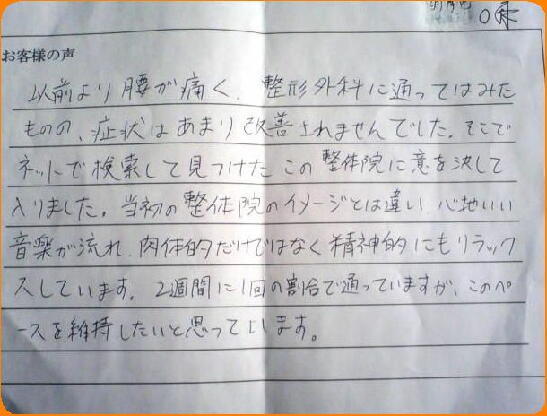 お客様の声
以前より腰が痛く、整形外科に通ってはみた
ものの、症状はあまり改善されませんでした。そこで
ネットで検索して見つけたこの整体院に意を決して
入りました。当初の整体院のイメージとは違い、心地いい
音楽が流れ、肉体的だけではなく精神的にもリラック
スしています。2週間に1回の割合で通っていますが、このペ
ースを維持したいと思っています。